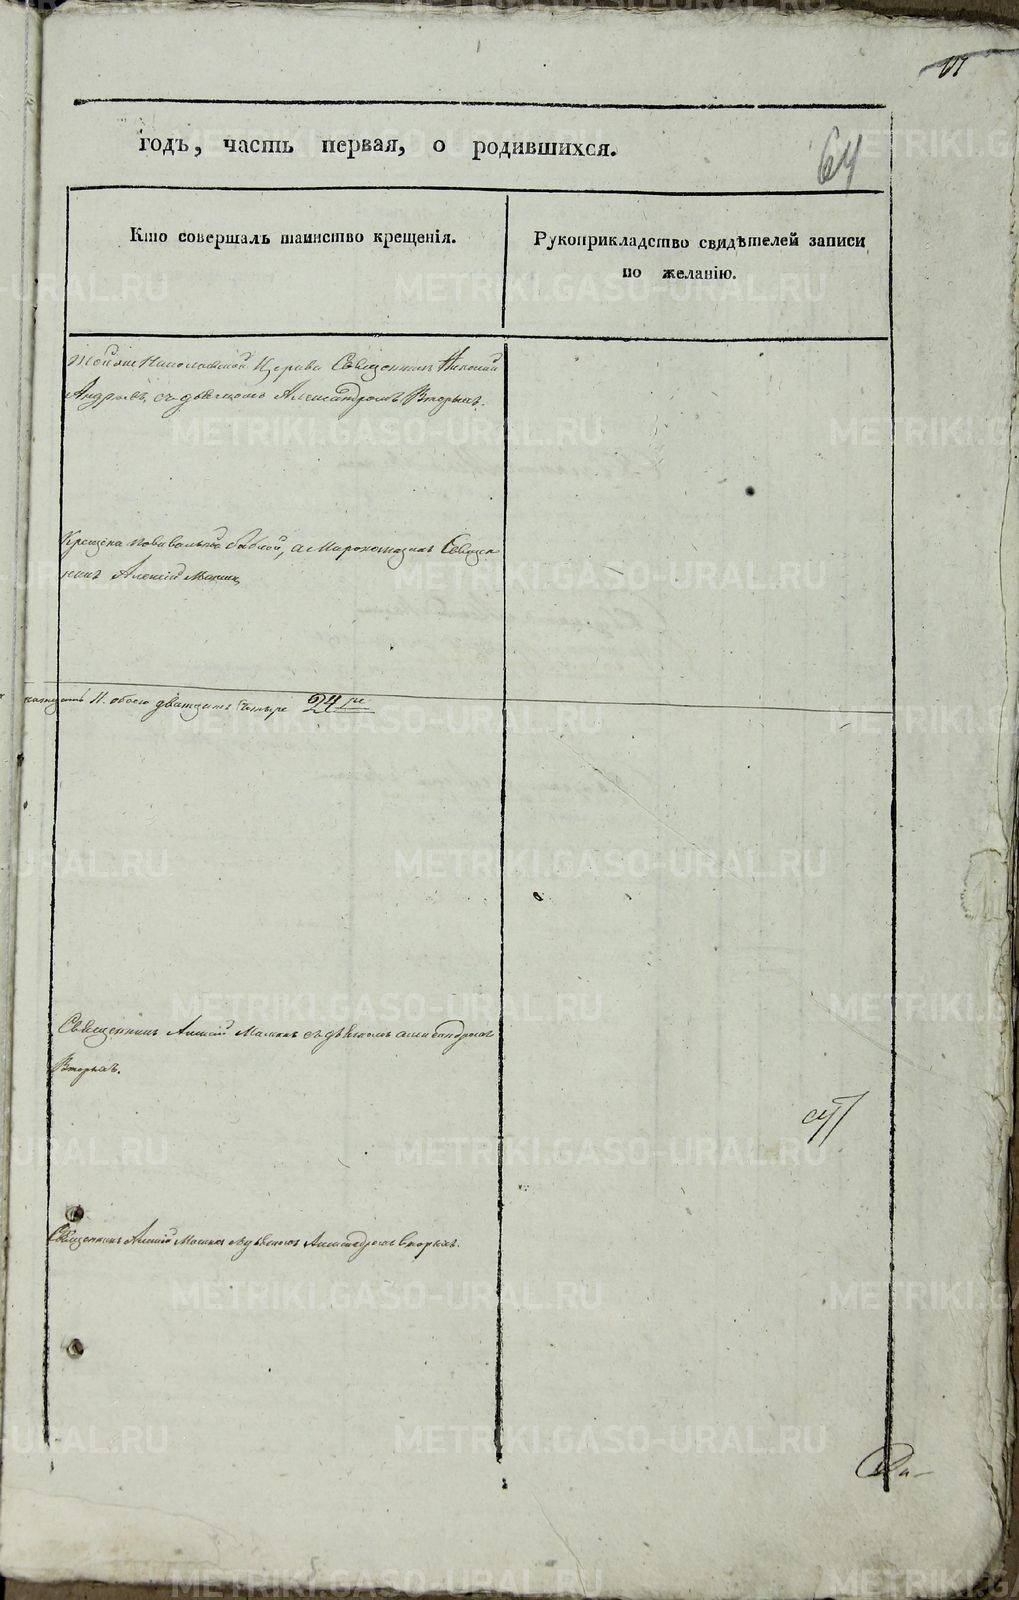 64
годъ, часть первая, о родившихся.
Кто совершалъ таинство крещенія.
Рукоприкладство свидѣтелей записи
по желанію.
Той же Николаевской Церкви Священникъ Алексий
съ дьячкомъ Александромъ Вторыхъ.
Крещена повивальной бабкой, а Миропомазанъ Священ
никъ Алексий
П. обоего двадцать четыре 24ре
Священникъ Алексий съ дьячкомъ Александромъ
Вторыхъ.
Священникъ Алексий съ дьячкомъ Александромъ Вторыхъ.
METRIKI.GASO-URAL.RU